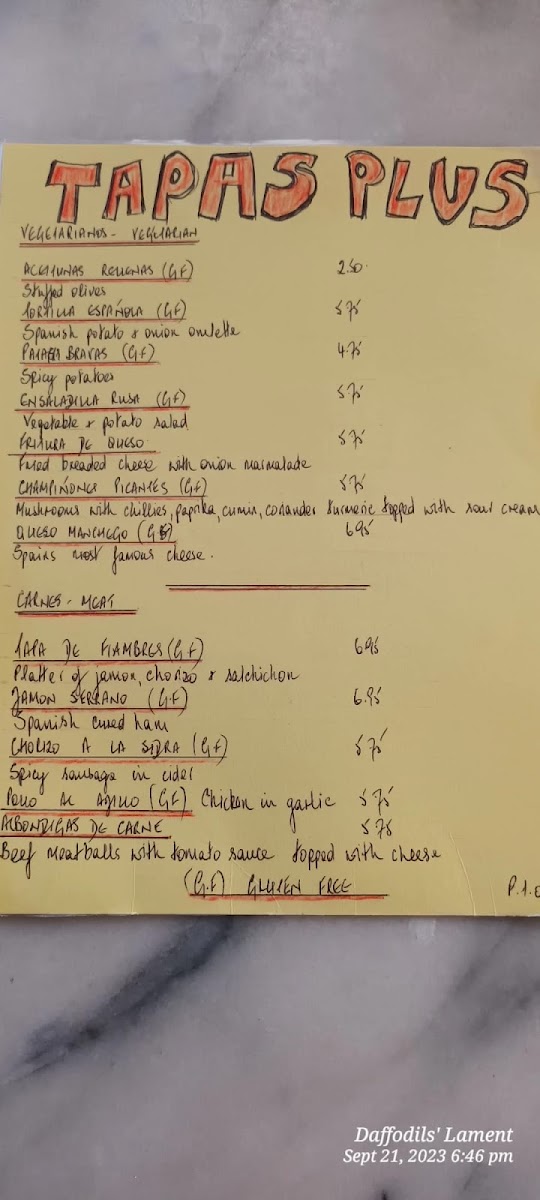 TAPAS PLUS
VEGETARIANOS - VEGETARIAN
ACEITUNAS RELLENAS (G.F) 2.50
Stuffed olives
TORTILLA ESPAÑOLA (G.F) 5.75
Spanish potato & onion omelette
PATATA BRAVAS (G.F) 4.75
Spicy potatoes
ENSALADILLA RUSA (G.F) 5.75
Vegetable & potato salad
FRITURA DE QUESO 5.75
Fried breaded cheese with onion marmalade
CHAMPIÑONES PICANTES (G.F) 5.75
Mushrooms with chillies, paprika, cumin, coriander turmeric topped with sour cream
QUESO MANCHEGO (GF) 6.95
Spains most famous cheese.
CARNES - MEAT
TAPA DE FIAMBRES (G.F) 6.95
Platter of jamon, chorizo & salchichon
JAMON SERRANO (G.F) 6.95
Spanish cured ham
CHORIZO A LA SIDRA (G.F) 5.75
Spicy sausage in cider
POLLO AL AJILLO (G.F) Chicken in garlic 5.75
ALBONDIGAS DE CARNE 5.75
Beef meatballs with tomato sauce topped with cheese
(G.F) GLUTEN FREE
Daffodils' Lament
Sept 21, 2023 6:46 pm